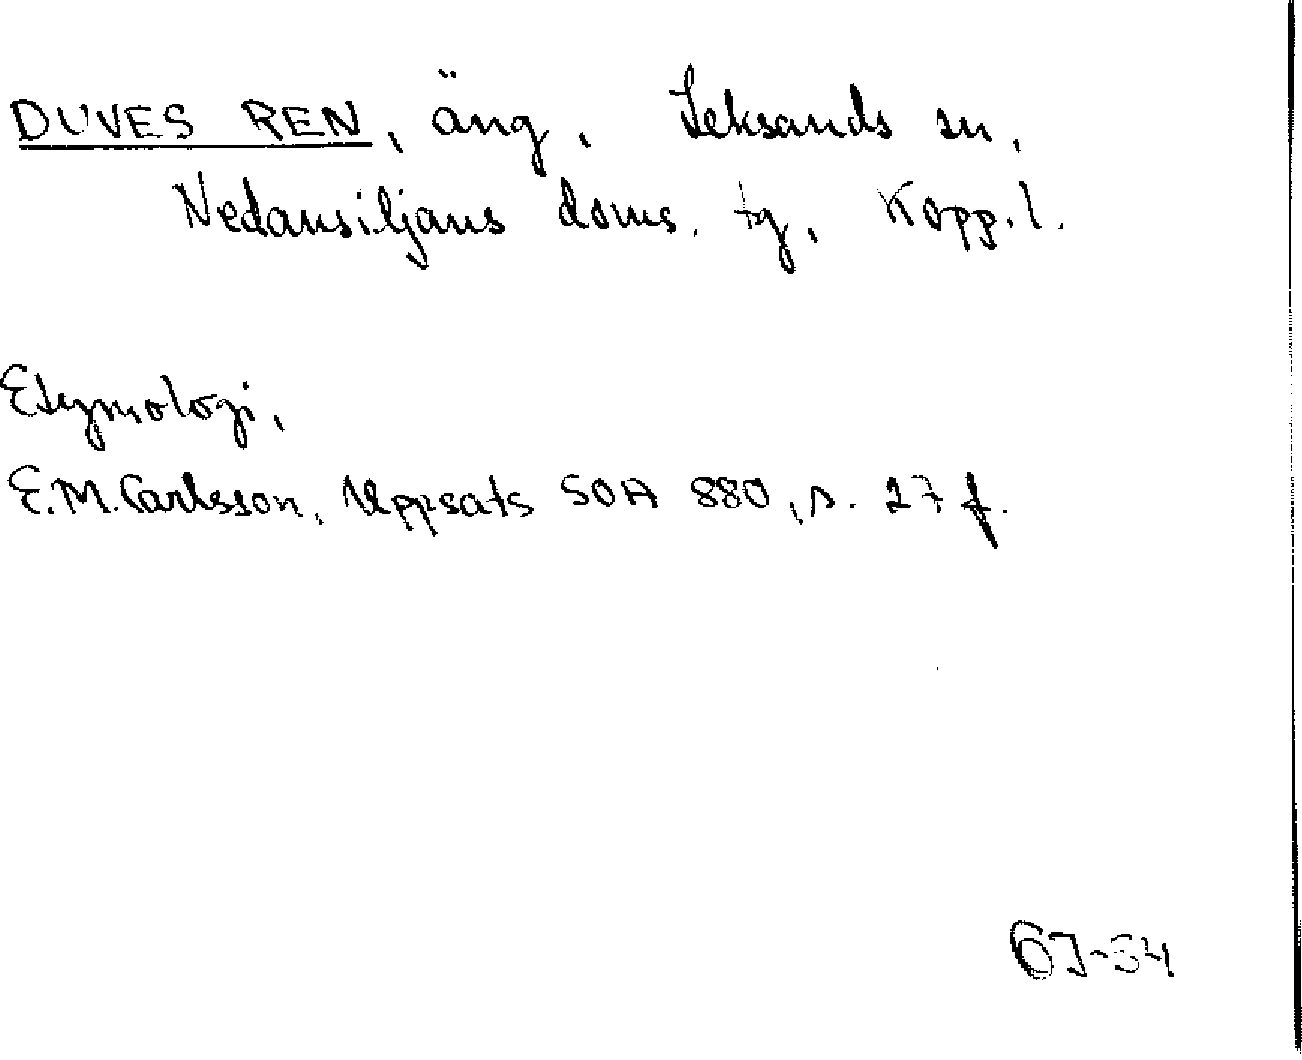 DUVES REN, äng, Leksands sn,
Nedansiljans doms. tg, Kopp.l.
Etymologi,
E.M. Carlsson, Uppsats SOA 880, s. 27 f.